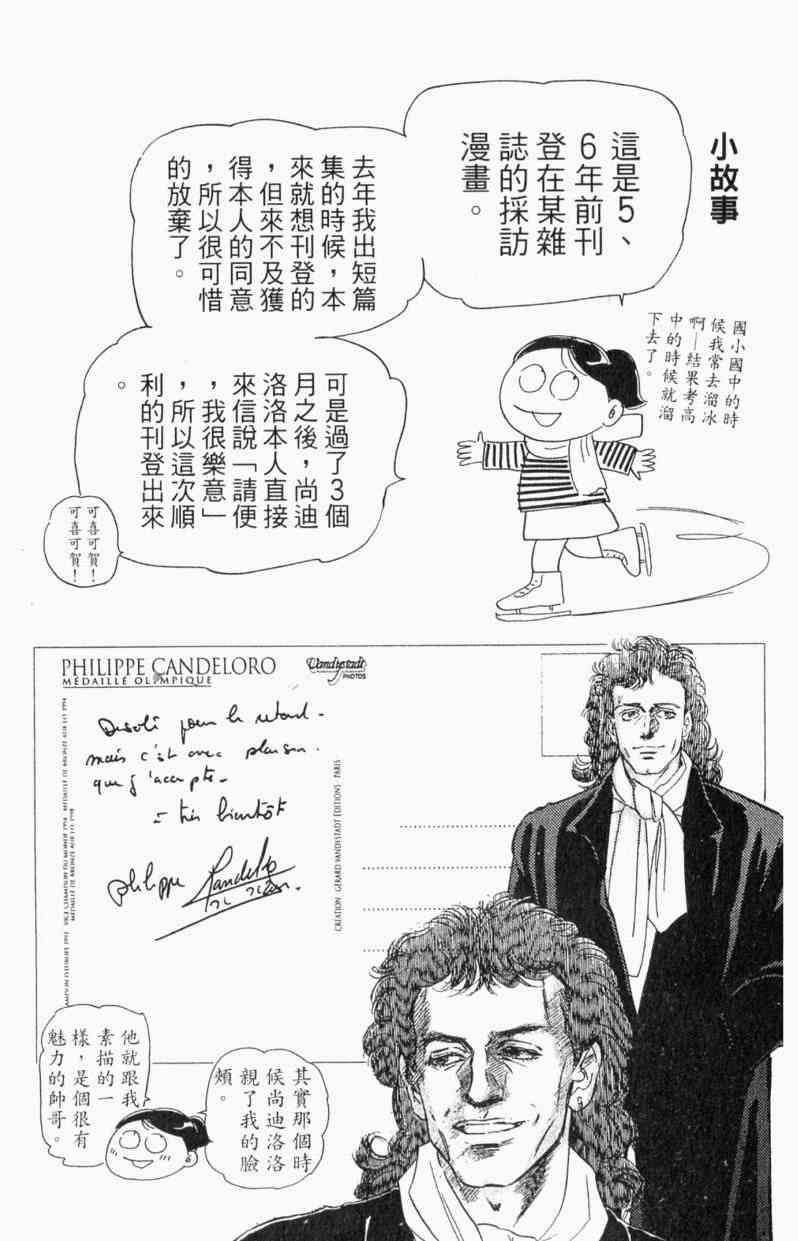 小故事
這是5、
6年前刊
登在某雜
誌的採訪
漫畫。
去年我出短篇
集的時候，本
來就想刊登的
，但來不及獲
得本人的同意
，所以很可惜
的放棄了。
國小國中的時
候我常去溜冰
啊—結果考高
中的時候就溜
下去了。
可是過了3個
月之後，尚迪
洛洛本人直接
來信說「請便
，我很樂意」
，所以這次順
利的刊登出來
。
可喜可賀！
可喜可賀！
PHILIPPE CANDELORO
MÉDAILLÉ OLYMPIQUE
Vandystadt
PHOTOS
Désolé pour le retard -
mais c'est avec plaisir.
que j'accepte -
à très bientôt
philippe Candeloro
CREATION : GERARD VANDYSTADT EDITIONS - PARIS
其實那個時
候尚迪洛洛
親了我的臉
頰。
他就跟我
素描的一
樣，是個很有
魅力的帥哥。